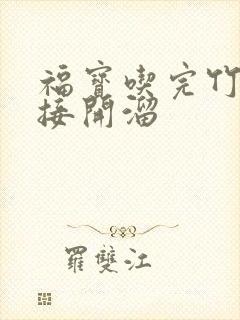 福寶喫完竹
接開溜
羅雙江